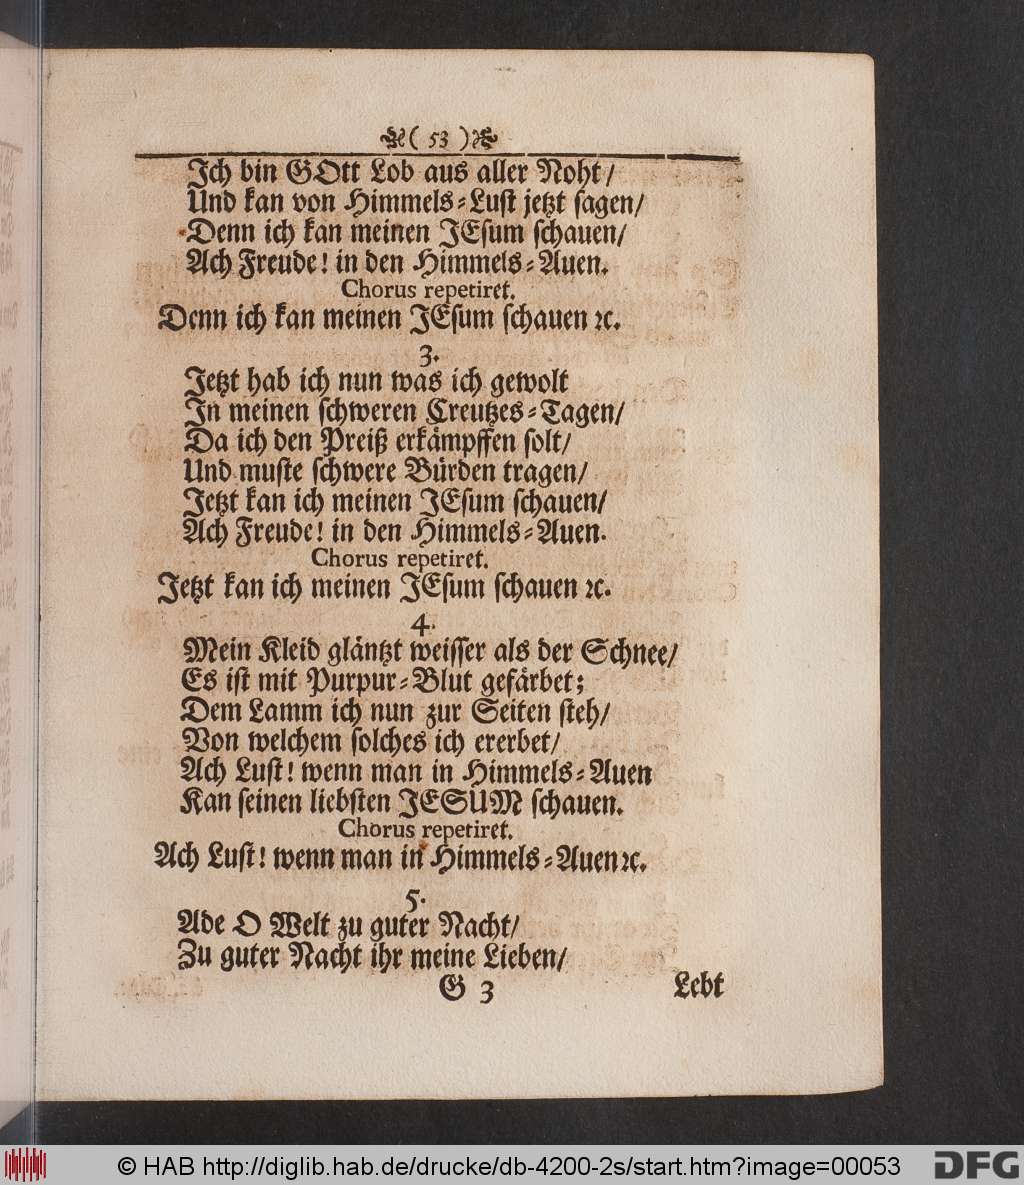 ( 53 )
Ich bin GOtt Lob aus aller Noht/
Und kan von Himmels-Lust jetzt sagen/
Denn ich kan meinen JEsum schauen/
Ach Freude! in den Himmels-Auen.
Chorus repetiret.
Denn ich kan meinen JEsum schauen ꝛc.
3.
Jetzt hab ich nun was ich gewolt
In meinen schweren Creutzes-Tagen/
Da ich den Preiß erkämpffen solt/
Und muste schwere Bürden tragen/
Jetzt kan ich meinen JEsum schauen/
Ach Freude! in den Himmels-Auen.
Chorus repetiret.
Jetzt kan ich meinen JEsum schauen ꝛc.
4.
Mein Kleid gläntzt weisser als der Schnee/
Es ist mit Purpur-Blut gefärbet;
Dem Lamm ich nun zur Seiten steh/
Von welchem solches ich ererbet/
Ach Lust! wenn man in Himmels-Auen
Kan seinen liebsten JESUM schauen.
Chorus repetiret.
Ach Lust! wenn man in Himmels-Auen ꝛc.
5.
Ade O Welt zu guter Nacht/
Zu guter Nacht ihr meine Lieben/
G 3 Lebt
© HAB http://diglib.hab.de/drucke/db-4200-2s/start.htm?image=00053 DFG